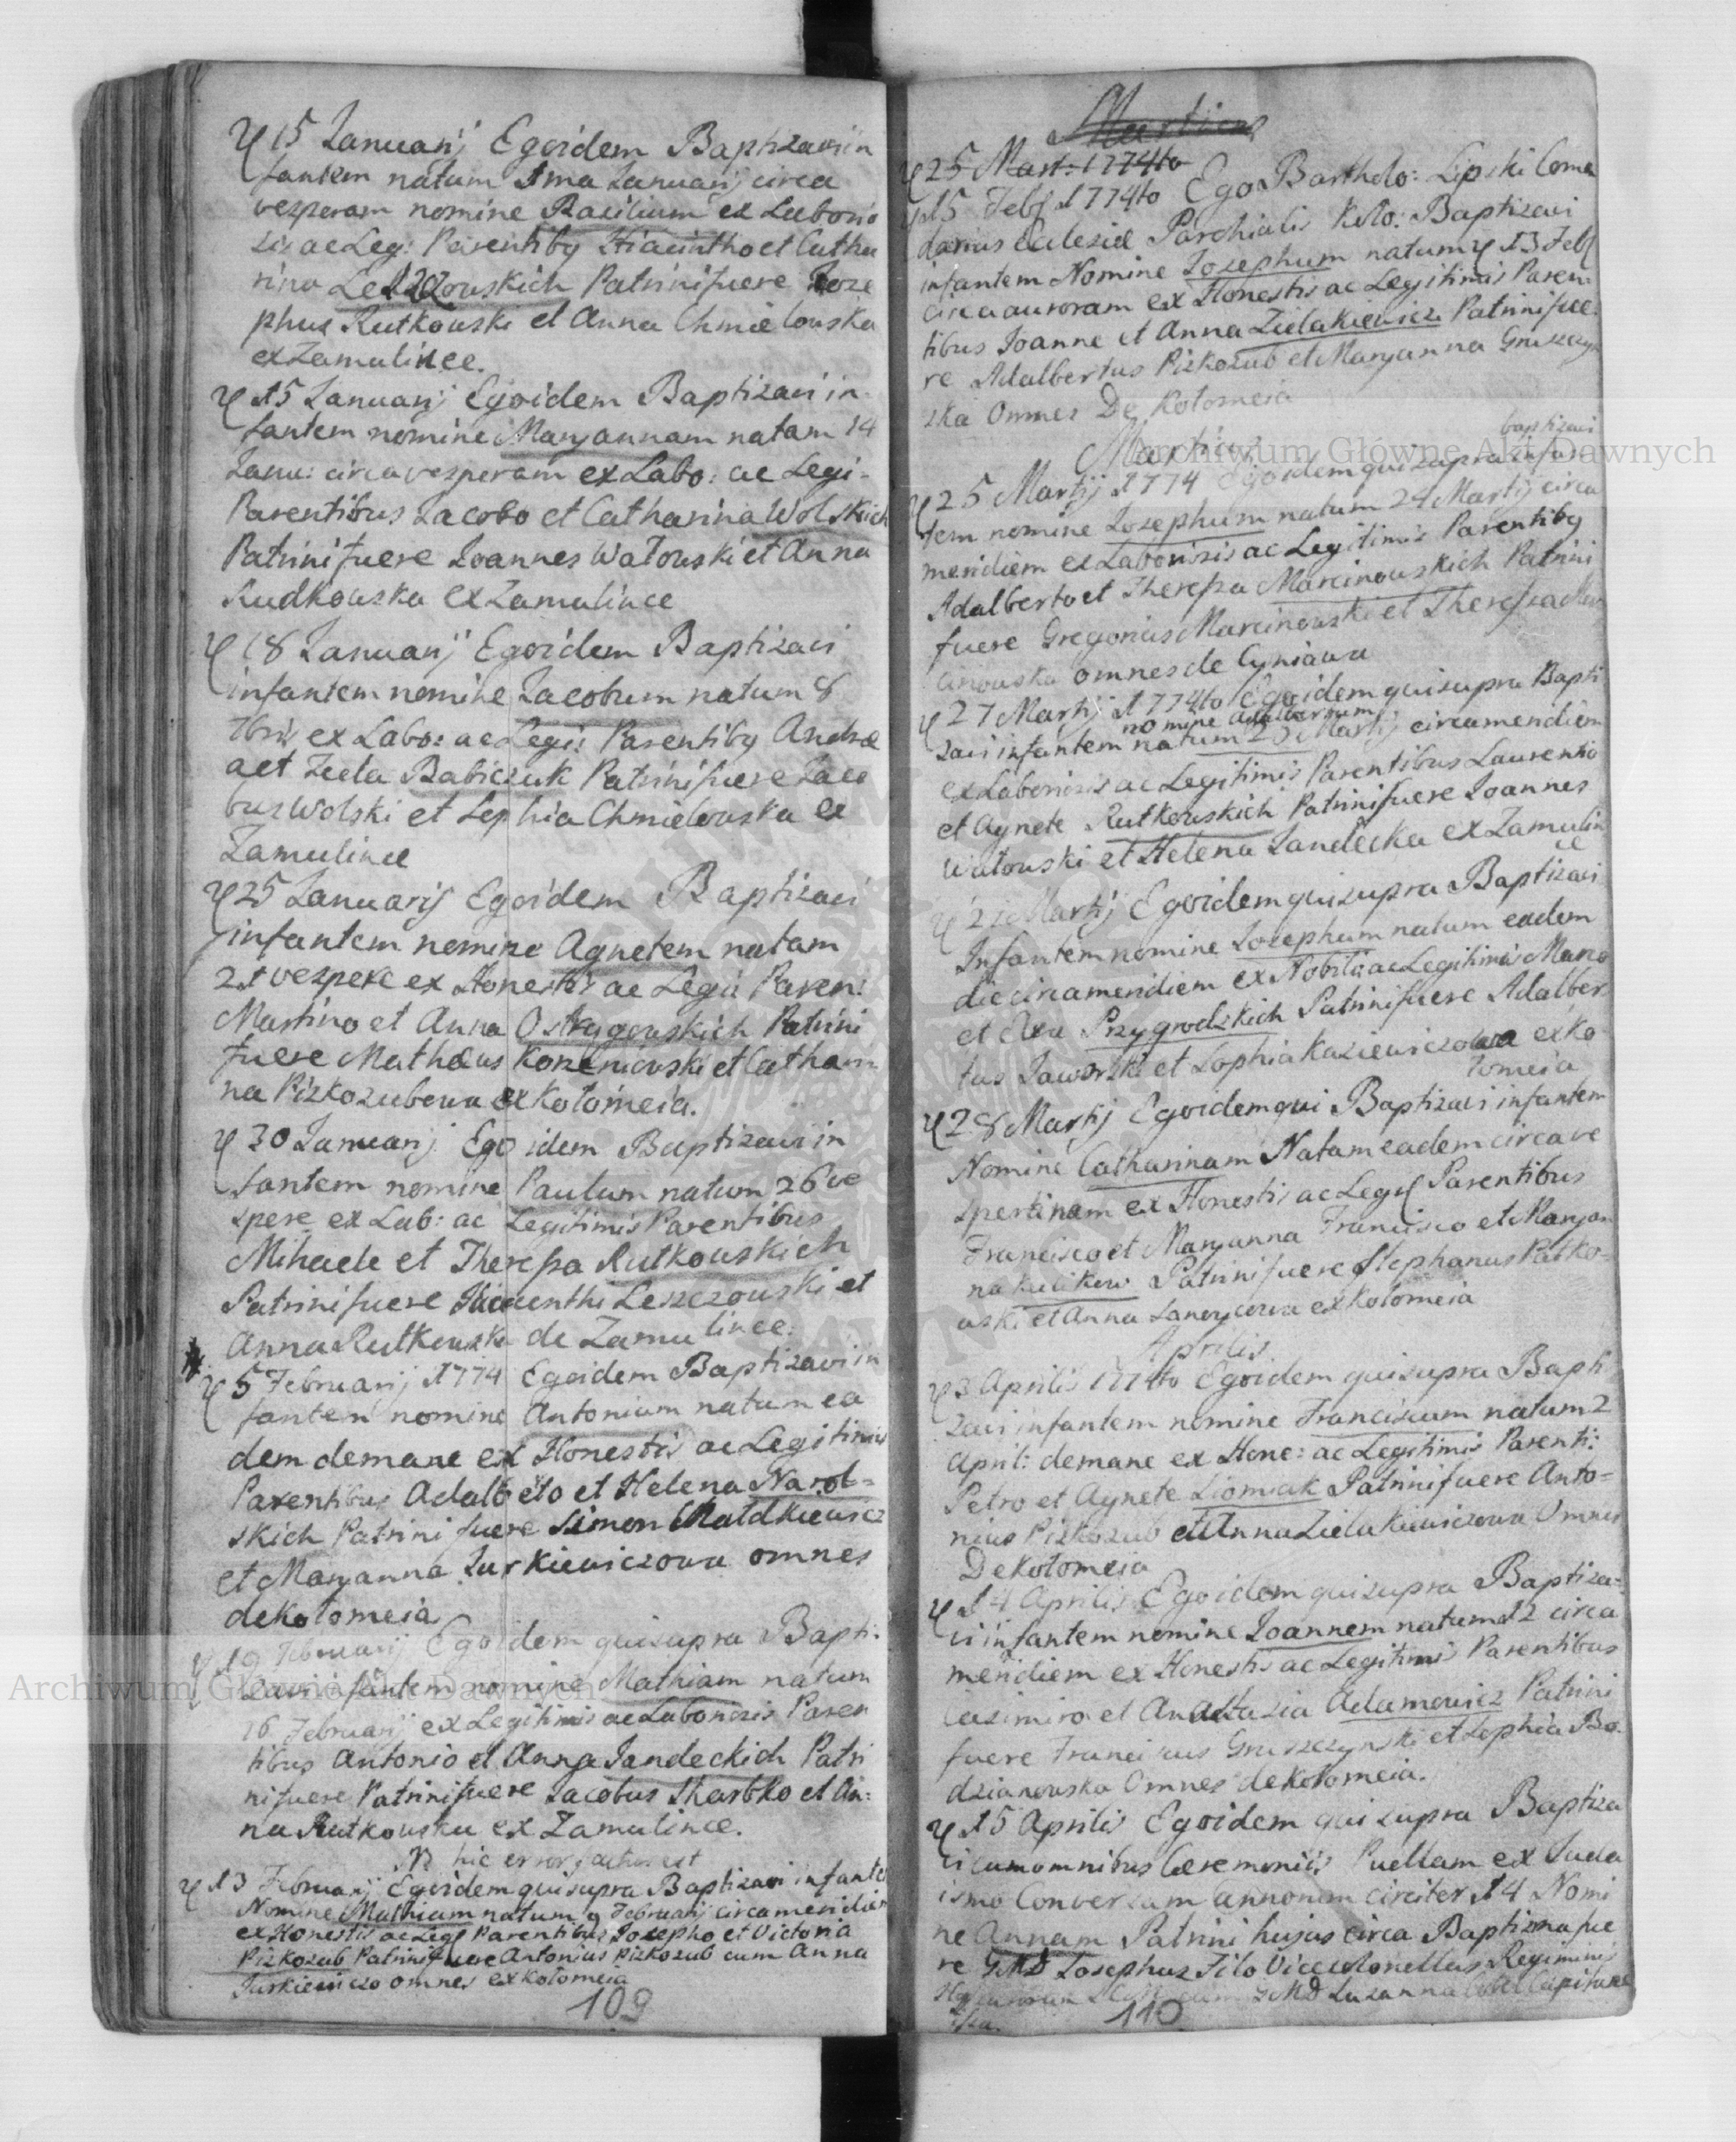 15 Januarij Egoidem Baptizavi in
fantem natum 1ma Januarij circa
vesperam nomine Basilium ex Laborio
sis ac Leg: Parentiby Hiacintho et Catha
rina Leszczowskich Patrini fuere Jose
phus Rutkowski et Anna Chmielowska
ex Zamulince.
15 Januarij Egoidem Baptizavi in-
fantem nomine Maryannam natam 14
Janu: circa vesperam ex Labo: ac Legi-
Parentibus Jacobo et Catharina Wolskich
Patrini fuere Joannes Watowski et Anna
Rudkowska ex Zamulince
18 Januarij Egoidem Baptizavi
infantem nomine Jacobum natum 8
ex Labo: ac Legi: Parentiby Andre
aet Tecla Babiczuk Patrini fuere Jaco
bus Wolski et Sophia Chmielowska ex
Zamulince
25 Januarij Egoidem Baptizavi
infantem nomine Agnetem natam
21 vespere ex Honestis ac Legi: Paren:
Martino et Anna Ostrygowskich Patrini
fuere Mathæus Korzeniowski et Cathari
na Pizkozubowa ex Kołomeia.
30 Januarij Egoidem Baptizavi in
fantem nomine Paulum natum 26 ve
spere ex Lab: ac Legitimis Parentibus
Mihaele et Theressa Rutkowskich
Patrini fuere Hiacenthi Leszczowski et
Anna Rutkowska de Zamulince:
5 Februarij 1774 Egoidem Baptizavi in
fantem nomine Antonium natum ea
dem demane ex Honestis ac Legitimis
Parentibus Adalbeto et Helena Narol-
skich Patrini fuere Simon Małdkiewicz
et Maryanna Jurkiewiczowa omnes
de Kołomeia
19 Februarij Egoidem qui supra Bapti-
zavi infantem nomine Mathiam natum
16 Februarij ex Legitimis ac Laboriosis Paren
tibus Antonio et Anna Jandeckich Patri
ni fuere Patrini fuere Jacobus Skarbko et An:
na Rutkowska ex Zamulince.
NB hic error factus est
13 Februarij Egoidem qui supra Baptizavi infante
Nomine Mathiam natum 9 Februarij circa meridiem
ex Honestis ac Legi Parentibus Josepho et Victoria
Pizkozub Patrini fuere Antonius Pizkozub cum Anna
Jurkiewiczo omnes ex Kołomeia
109
Martius
25 Mart: 1774to
15 Febr 1774to Ego Bartholo: Lipski Comen
darius Eclesiæ Parchialis Koło: Baptizavi
infantem Nomine Josephum natum 13 Feb
circa auroram ex Honestis ac Legitimis Paren:
tibus Joanne et Anna Zielakiewicz Patrini fue:
re Adalbertus Pizkozub et Maryanna Gruszczyn
ska Omnes De Kołomeia
Martius
baptizavi
25 Martij 1774 Egoidem qui supra infan
tem nomine Josephum natum 24 Martij circa
meridiem ex Laboriosis ac Legitimis Parentiby
Adalberto et Theressa Marcinowskich Patrini
fuere Gregorius Marcinowski et Theressa Mar
cinowska omnes de Cyniawa
27 Martij 1774to Egoidem qui supra Bapti
nomine Adalbertum
zavi infantem natum 25 Martij circa meridiem
ex Laboriosis ac Legitimis Parentibus Laurentio
et Agnete Rutkowskich Patrini fuere Joannes
Watowski et Helena Jandecka ex Zamulin
ce
Martij Egoidem qui supra Baptizavi
Infantem nomine Josephum natum eadem
die circa meridiem ex Nobili: ac Legitimis Marco
et Eva Przygrodzkich Patrini fuere Adalber
tus Jaworski et Sophia Kaziewiczowa ex Ko
łomeia
28 Martij Egoidem qui Baptizavi infantem
Nomine Catharinam Natam eadem circa ve
spertinam ex Honestis ac Legi Parentibus
Francisco et Maryanna Francisco et Maryan
na Kulikow Patrini fuere Stephanus Patko-
wski et Anna ex Kołomeia
Aprilis
3 Aprilis 1774to Egoidem qui supra Bapti
zavi infantem nomine Franciscum natum 2
April: demane ex Hone: ac Legitimis Parenti:
Petro et Agnete Slomiak Patrini fuere Anto=
nius Pizkozub et Anna Zielakiewiczowa Omnes
De Kołomeia
14 Aprilis Egoidem qui supra Baptiza-
vi infantem nomine Joannem natum 12 circa
meridiem ex Honestis ac Legitimis Parentibus
Casimiro et Anastazia Adamowicz Patrini
fuere Franciscus Gruszczynski et Sophia Bo-
dzianowska Omnes de Kołomeia.
15 Aprilis Egoidem qui supra Baptiza
vi cum omnibus Ceremoniis Puellam ex Juda
ismo Conversam annorum circiter 14 Nomi
ne Annam Patrini hujus circa Baptisma fue
re GMD Josephus Filo Vicecolonellus Regiminis
cum GMD Susanna Capitane
110
Archiwum Główne Akt Dawnych
Archiwum Główne Akt Dawnych